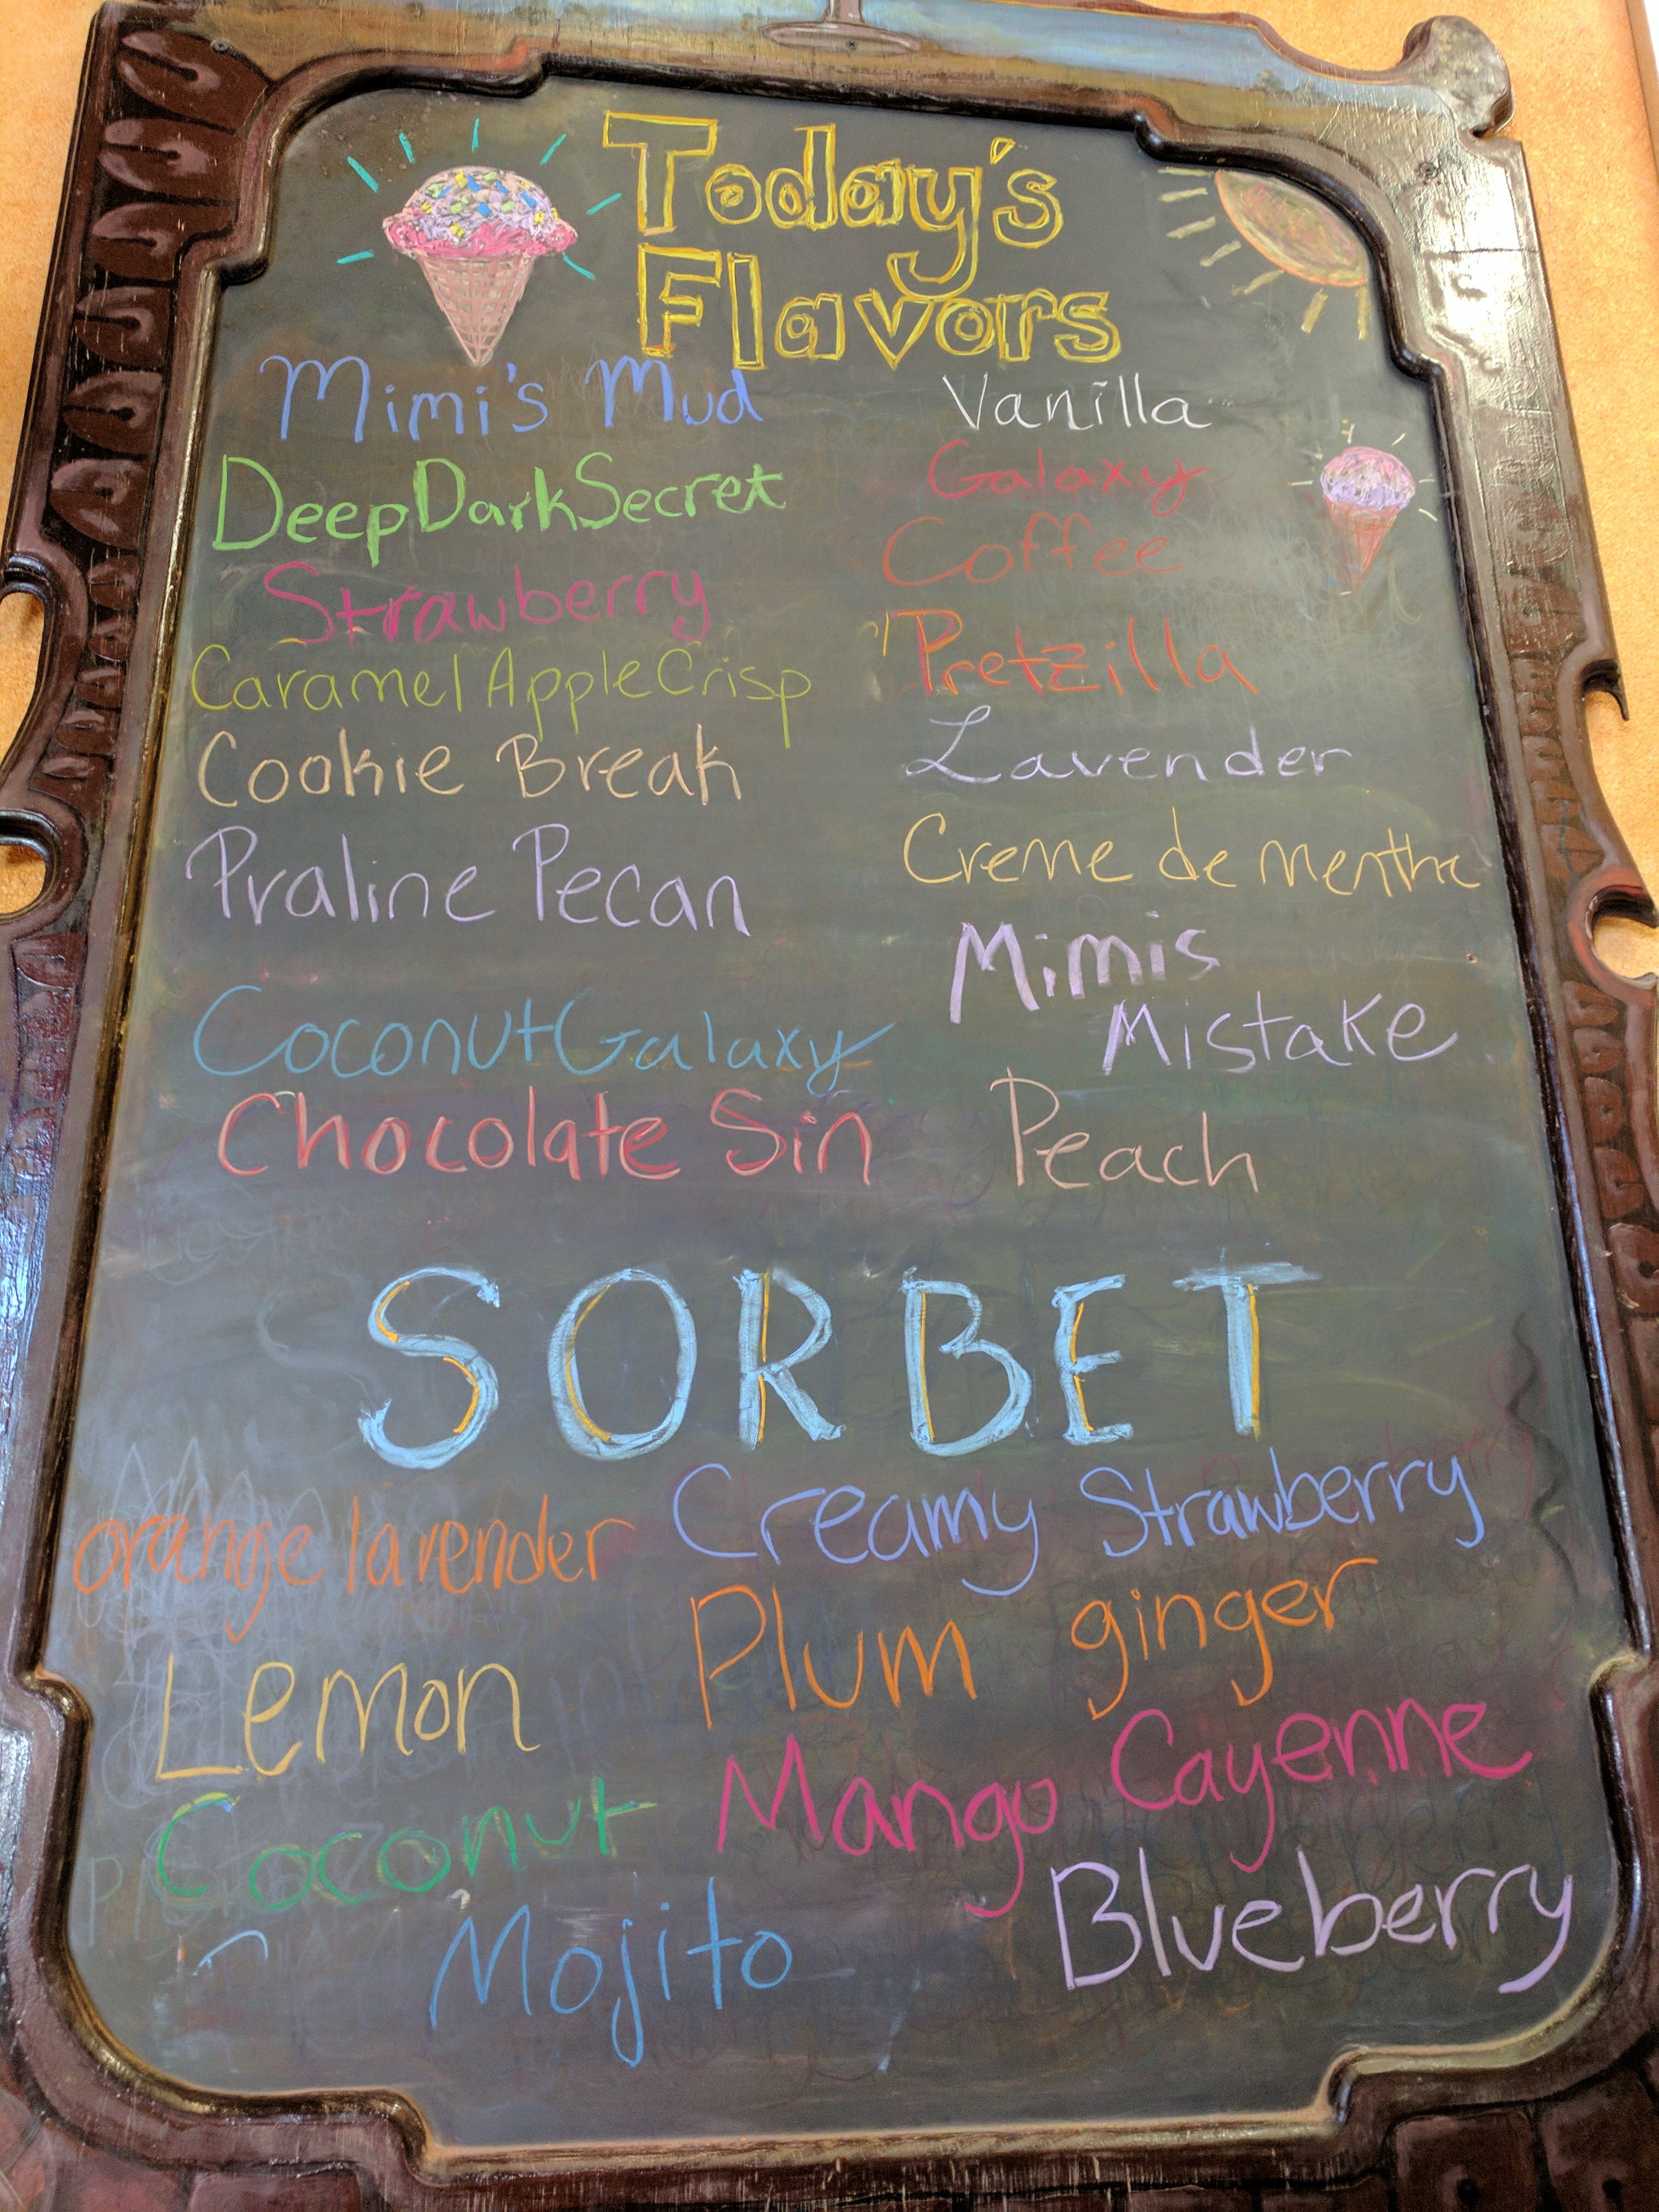 Today's
Flavors
Mimi's Mud
Deep Dark Secret
Strawberry
Caramel Apple Crisp
Cookie Break
Praline Pecan
Coconut Galaxy
Chocolate Sin
Vanilla
Galaxy
Coffee
Pretzilla
Lavender
Creme de menthe
Mimis
Mistake
Peach
SORBET
orange lavender
Lemon
Coconut
Mojito
Creamy Strawberry
Plum ginger
Mango Cayenne
Blueberry